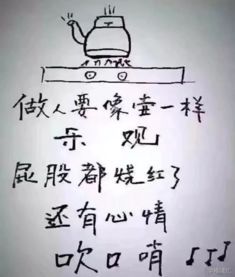 做人要像壶一样
乐观
屁股都烧红了
还有心情
吹口哨 ♪♪♪